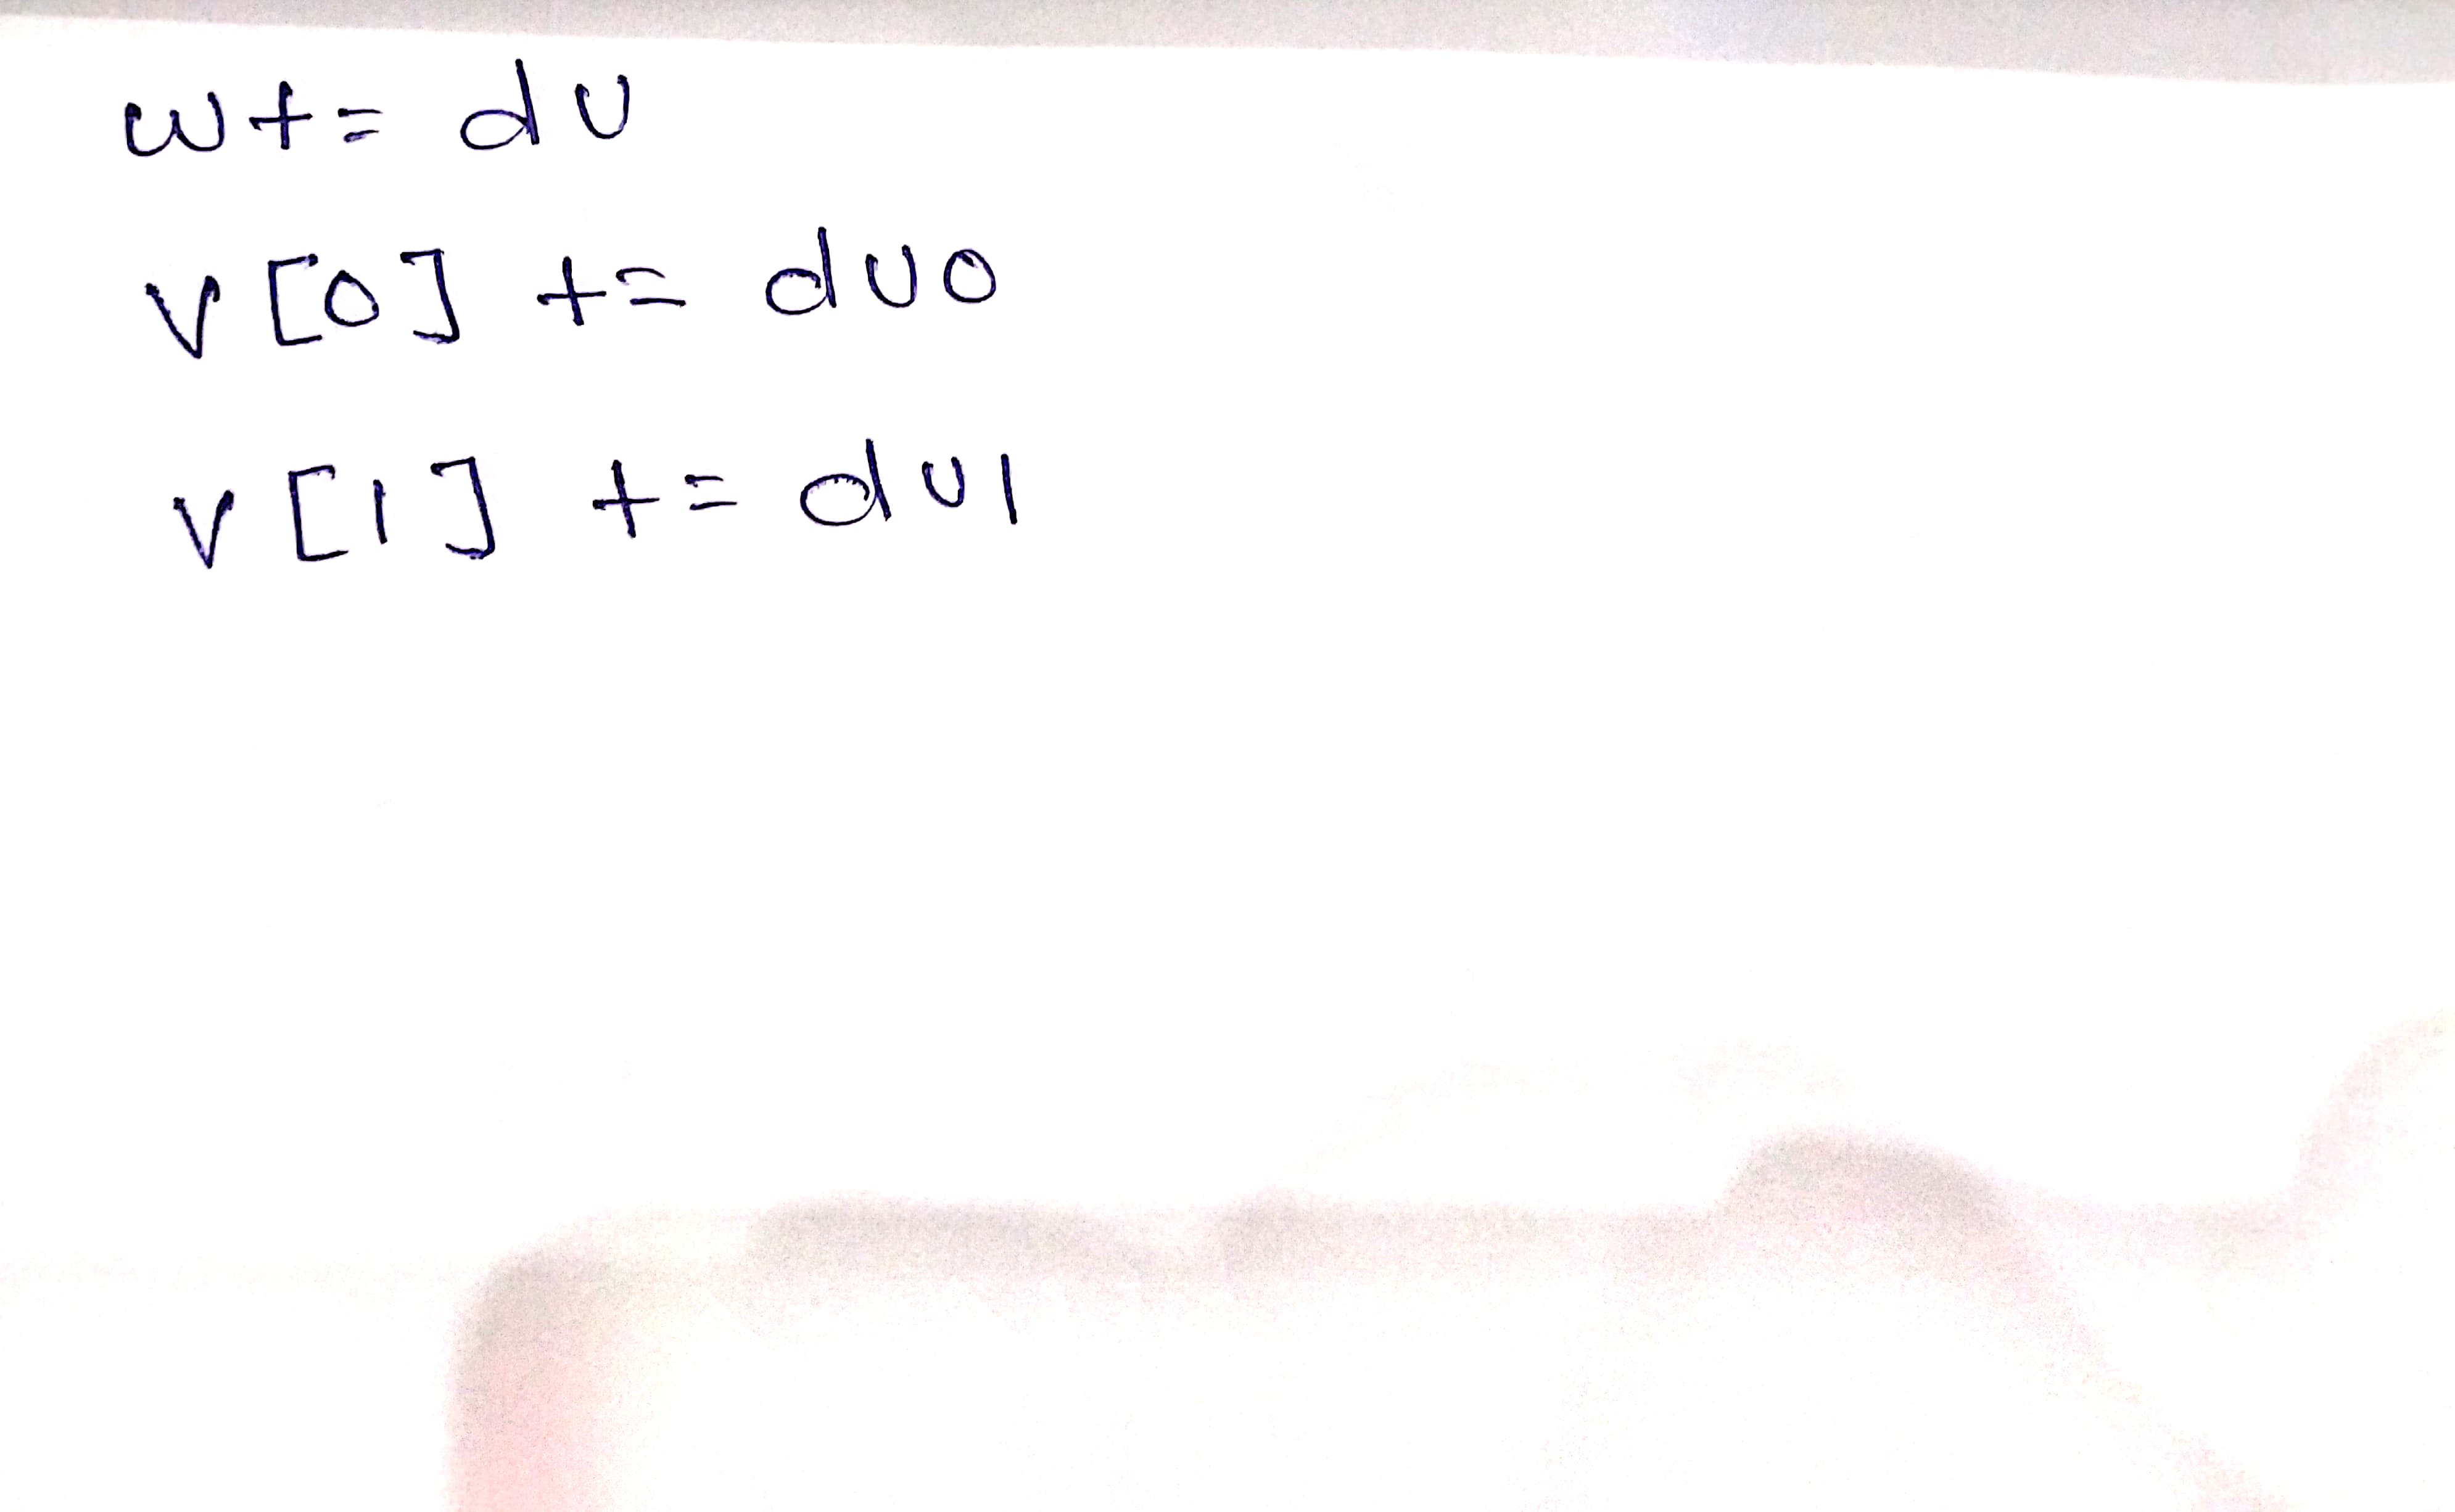 w += du
v [0] += du0
v [1] += du1